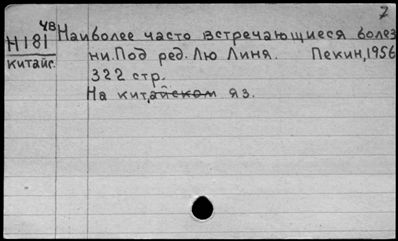 7
чв Наиболее часто встречающиеся болез
Н181
ни. Под ред. Лю Линя. Пекин, 1956
китайс.
322 стр.
На китайском яз.